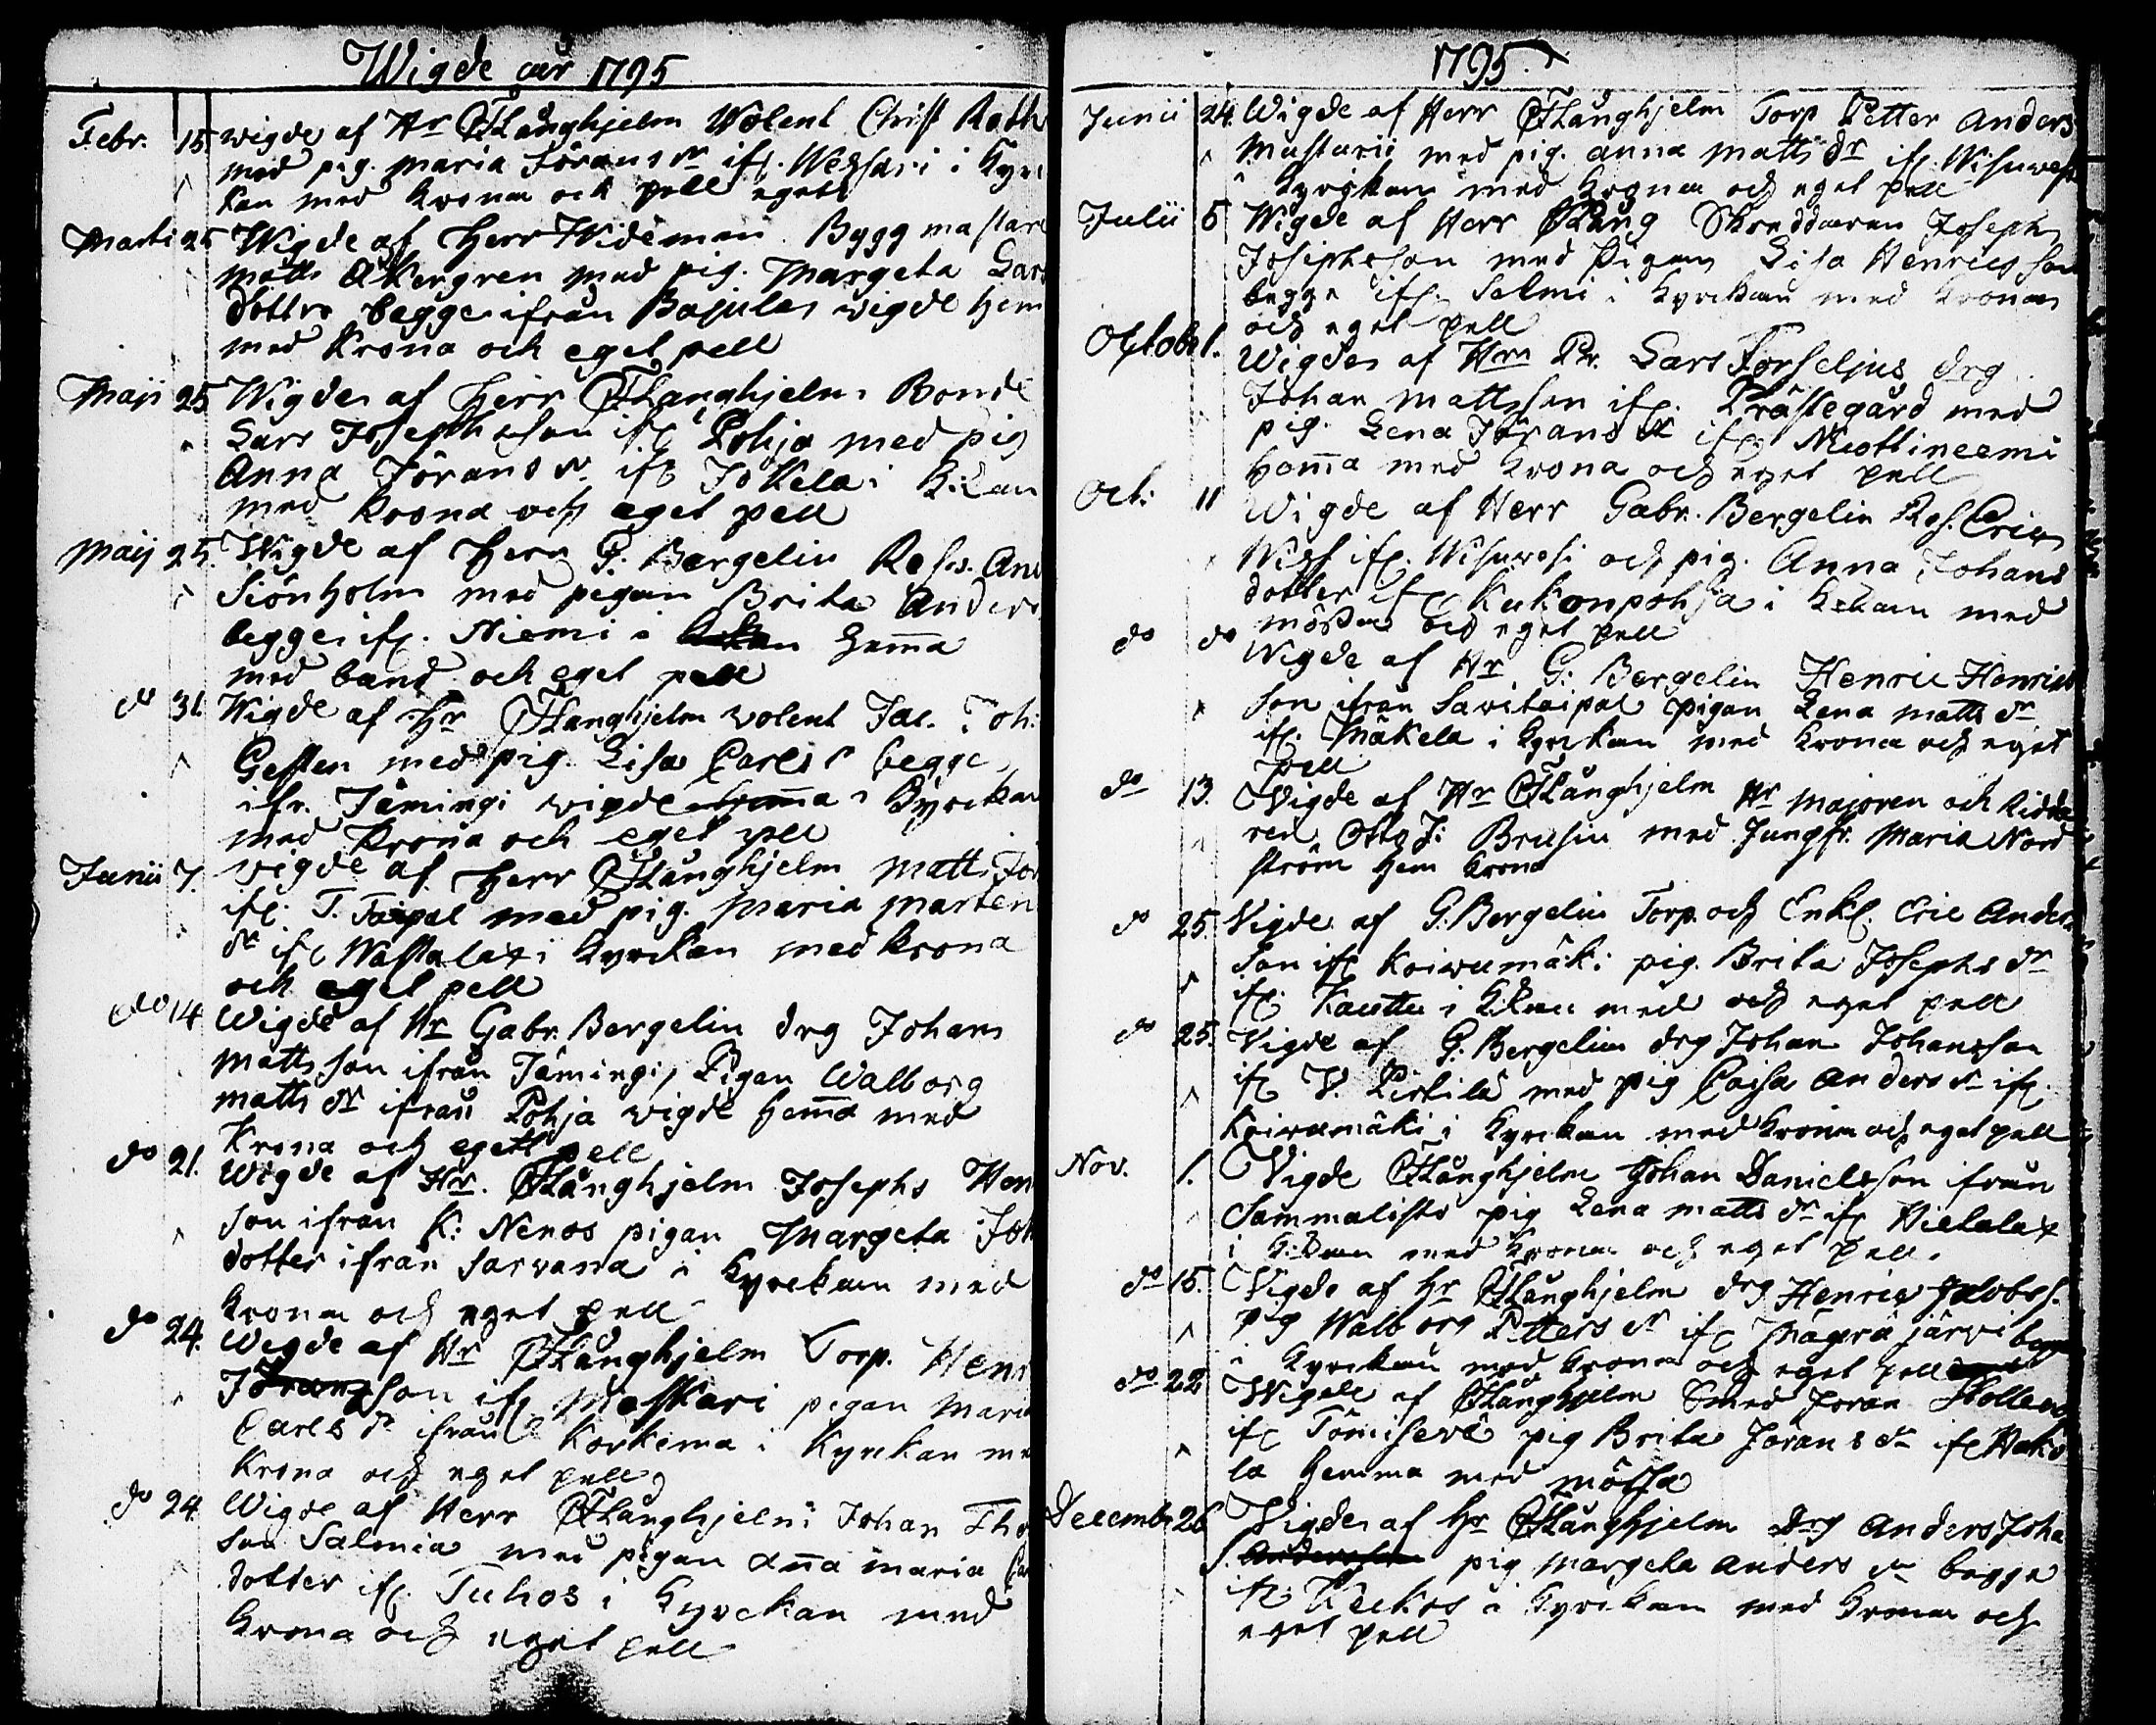 Wigde åhr 1795
Febr. 15. wigde af Hr CFLånghjelm Wolent Christ Roth
med pig. Maria Jöransdr ifr. Wessari i Kyr
kan med Krona och pell eget
Marti 25 Wigde af Herr Wideman Byggmästare
Matts Åkergren med pig. Margeta Lars
dotter begge ifrån Bajula wigde hem
med Krona och eget pell
Maji 25 Wigde af Herr CFLånghjelm Bonde
Lars Josephsson ifr Pohja med pig
Anna Jöransdr. ifr Jokela i K:kan
med Krona och eget pell
Maij 25. Wigde af Herr G: Bergelin And
Siönholm med pigan Brita Anders
begge ifr. Niemi i hemma
med band och eget pell
do 31 Wigde af Hr CFLanghjelm wolent Jac. Joh:
Gesten med pig. Lisa Carls begge
ifr. Jämingi wigde hemma i Kyrckan
med Krona och eget pell
Junii 7. vigde af Herr CFLånghjelm Matts Jör
ifr. T. Taipal med pig. Maria Mårtens
dr ifr Wastalax i Kyrckan med krona
och eget pell
do 14 Wigde af Hr Gabr. Bergelin drg Johan
Mattsson ifrån Jämingi, Pigan Walborg
Mattsdr ifrån Pohja wigde hemma med
Krona och egett pell
do 21. Wigde af Hr. CFLånghjelm Josephs Hen
son ifrån K: Nenos pigan Margeta Joh
dotter ifrån Sarvana i Kyrckan med
Krona och eget pell
do 24. Wigde af Hr CFLånghjelm Torp. Henr
Jöransson ifr Maskari pigan Maria
Carlsdr ifrån Korkema i Kyrckan me
Krona och eget pell
do 24 Wigde af Herr CFLånghjelm Johan Tho
son Salmia med pigan Anna Maria Ca
dotter ifr. Tuhos i Kyrckan med
Krona och eget pell
1795.
Junii 24. Wigde af Herr CFLånghjelm Torp Petter Anders
Mustarii med pig. Anna Mattsdr ifr. Wisuwesi
i Kyrckan med Krona och eget pell
Julii 5 Wigde af Herr Skreddaren Joseph
Josephsson med Pigan Lisa Henricsson
begge ifr. Salmi i Kyrckan med Krona
och eget pell
Octobr 1. Wigde af Hrn Pr. Lars Forseljus drg
Johan Mattsson ifr. Prästegård med
pig. Lena Jöransdr ifr Muttineemi
hemma med Krona och eget pell
Oct: 11 Wigde af Herr Gabr. Bergelin Eric
ifr. Wisuwesi och pig. Anna Johans
dotter ifr Kukonpohja i K:kan med
mössa och eget pell
do do Wigde af Hr G: Bergelin Henric Henrics
son ifrån Savitaipal pigan Lena Mattsdr
ifr. Mäkelä i Kyrckan med Krona och eget
pell
do 13. Vigde af Hr CFLånghjelm Hr Majoren och Ridda
ren Otto J: Brusin med Jungfr. Maria Nord
ström hem Krona
do 25. Vigde af G: Bergelin Torp. och Enkl. Eric Anders
son ifr Koivumäki pig. Brita Josephsdr
ifr. Kauttu i K:kan med och eget pell
do 25. Vigde af G: Bergelin drg Johan Johansson
ifr W. Pirtilä med pig Caisa Andersdr ifr.
Koivumäki i Kyrckan med Krona och eget pell
Nov. 1. Vigde CFLånghjelm Johan Danielsson ifrån
Sammalisto pig Lena Mattsdr ifr Hietalax
i K:kan med Krona och eget pell.
do 15. Vigde af Hr CFLånghjelm drg Henric Jacobss.
pig Walborg Pettersdr ifr Mägräjärvi begge
i Kyrckan med Krona och eget pell
do 22 Wigde af CFLånghjelm Smed Jöran
ifr Tömiserä pig Brita Jöransdr ifr Hako
la hemma med mössa
Decembr 26 Vigde af Hr CFLånghjelm Drg Anders Joha
s. Andersson pig Margeta Andersdr begge
ifr. Keckos i Kyrckan med Krona och
eget pell